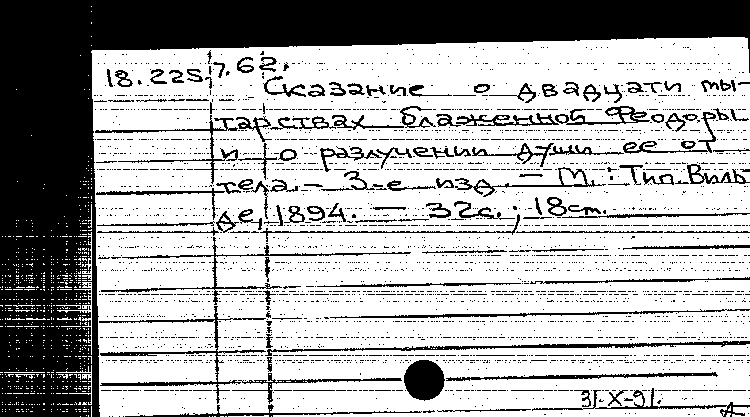 18.225.7.62.
Сказание о двадцати мы-
тарствах блаженной Феодоры
и о разлучении души ее от
тела. - 3-е изд. - М.: Тип. Виль-
де, 1894. - 32с.; 18cm.
31-X-91.